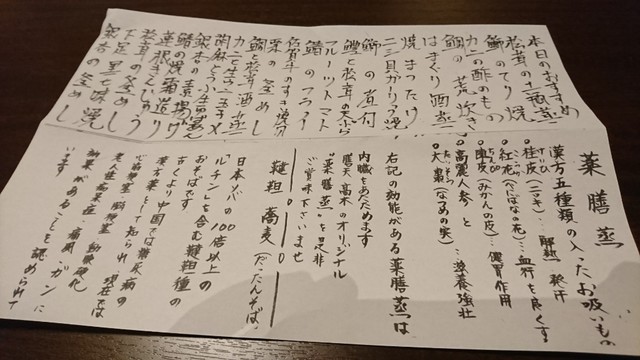 本日のおすすめ
松茸の土瓶蒸
鰤のてり焼
カニの酢のもの
鯛の荒炊き
はまぐり酒蒸
焼まったけ
鰤の煮付
鱧と松茸の天ぷら
フルーツトマト
鱧のフライ
栗の釜めし
鯛と松茸酒蒸
銀杏の素揚げ
鰆の焼霜造り
蓮根きんぴら
松茸の釜めし
銀杏の釜めし
薬膳蒸
漢方五種類の入ったお吸いもの
・桂皮(ニッキ)…解熱 発汗
・紅花(べにばなの花)…血行を良くす
・陳皮(みかんの皮)…健胃作用
・高麗人参と
・大棗(なつめの実)…滋養強壮
右記の効能がある薬膳蒸は
内臓をあたためます
膳天高木のオリジナル
"薬膳蒸"を是非
ご賞味下さいませ
韃靼蕎麦(だったんそば)
日本ソバの100倍以上の
"ルチン"を含む韃靼種の
おそばです
古くより中国では糖尿病の
漢方薬として知られ 現在では
心臓病 脳梗塞 動脈硬化
老人性痴呆症 痛風 ガンに
効果があることを認められて
います